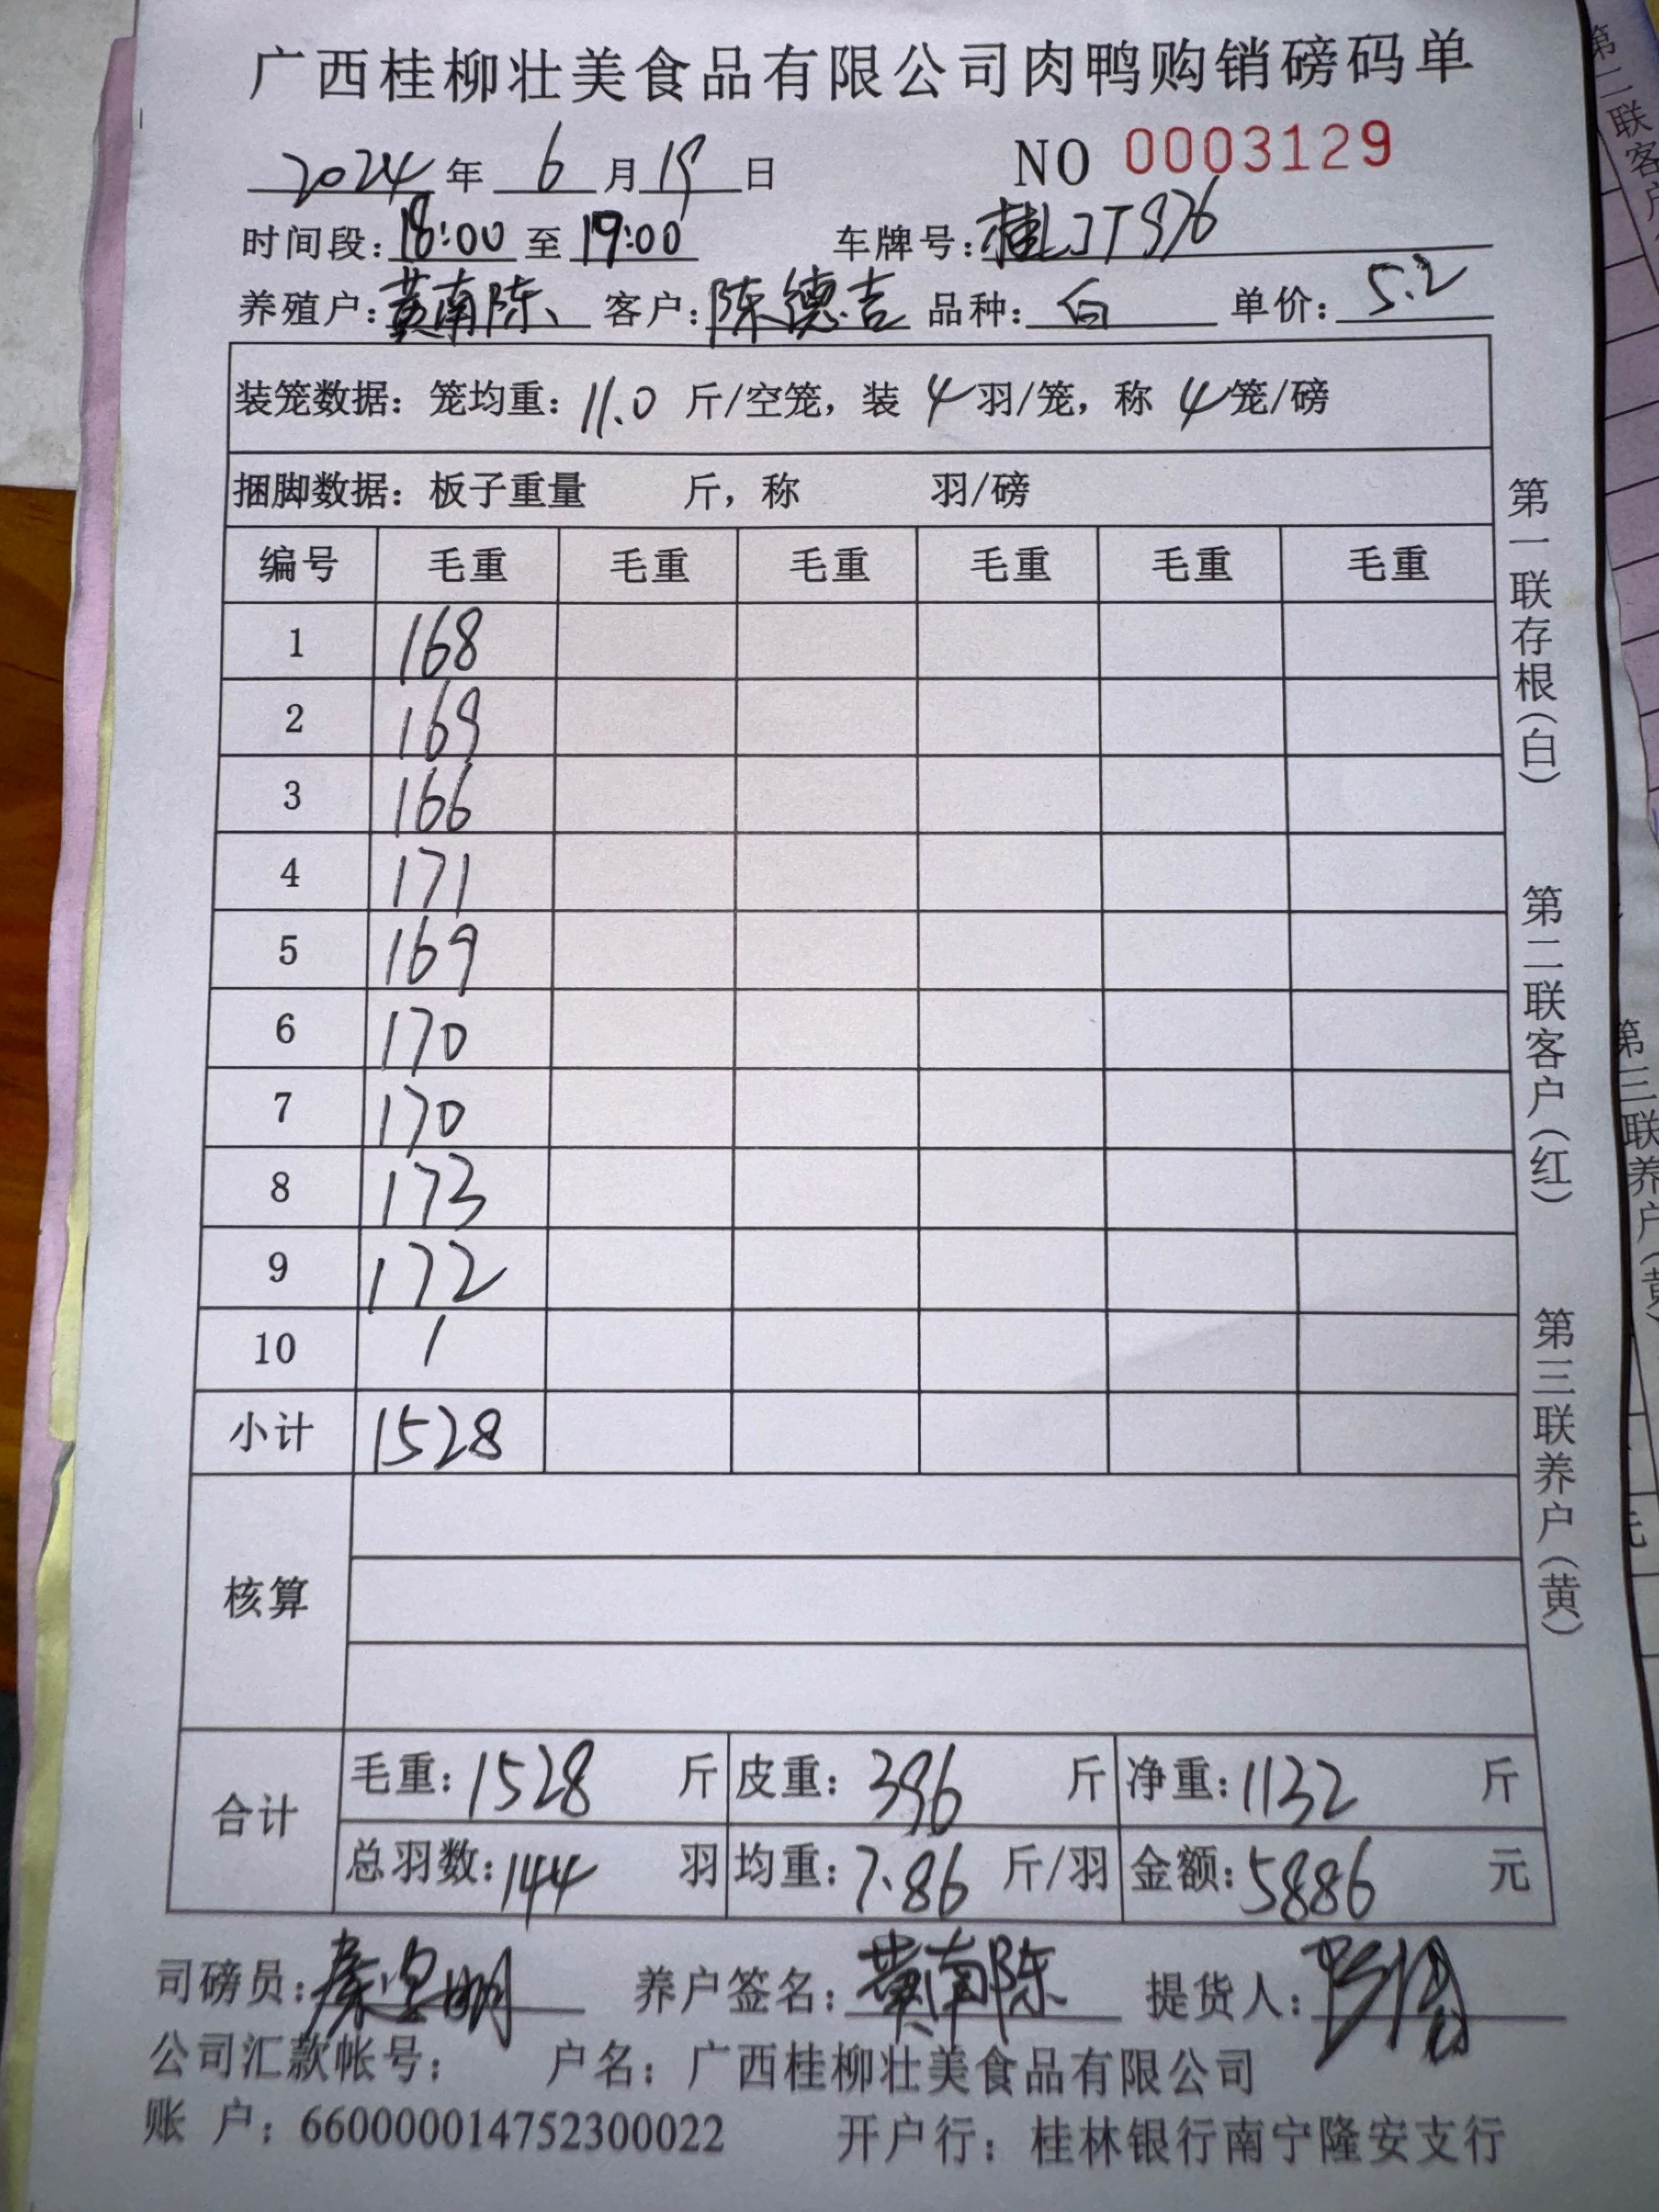 广西桂柳壮美食品有限公司肉鸭购销磅码单
2024 年 6 月 19 日 NO 0003129
时间段:18:00 至 19:00 车牌号:桂
养殖户:黄南陈、 客户:陈德吉 品种:白 单价:5.2
装笼数据:笼均重:11.0 斤/空笼,装 4 羽/笼,称 4 笼/磅
捆脚数据:板子重量 斤,称 羽/磅
编号 毛重 毛重 毛重 毛重 毛重 毛重
1 168
2 169
3 166
4 171
5 169
6 170
7 170
8 173
9 172
10 /
小计 1528
核算
合计
毛重:1528 斤 皮重:396 斤 净重:1132 斤
总羽数:144 羽 均重:7.86 斤/羽 金额:5886 元
司磅员: 养户签名:黄南陈 提货人:
公司汇款帐号: 户名:广西桂柳壮美食品有限公司
账 户:660000014752300022 开户行:桂林银行南宁隆安支行
第一联存根(白) 第二联客户(红) 第三联养户(黄)
第二联客户
第三联养户(黄)
元